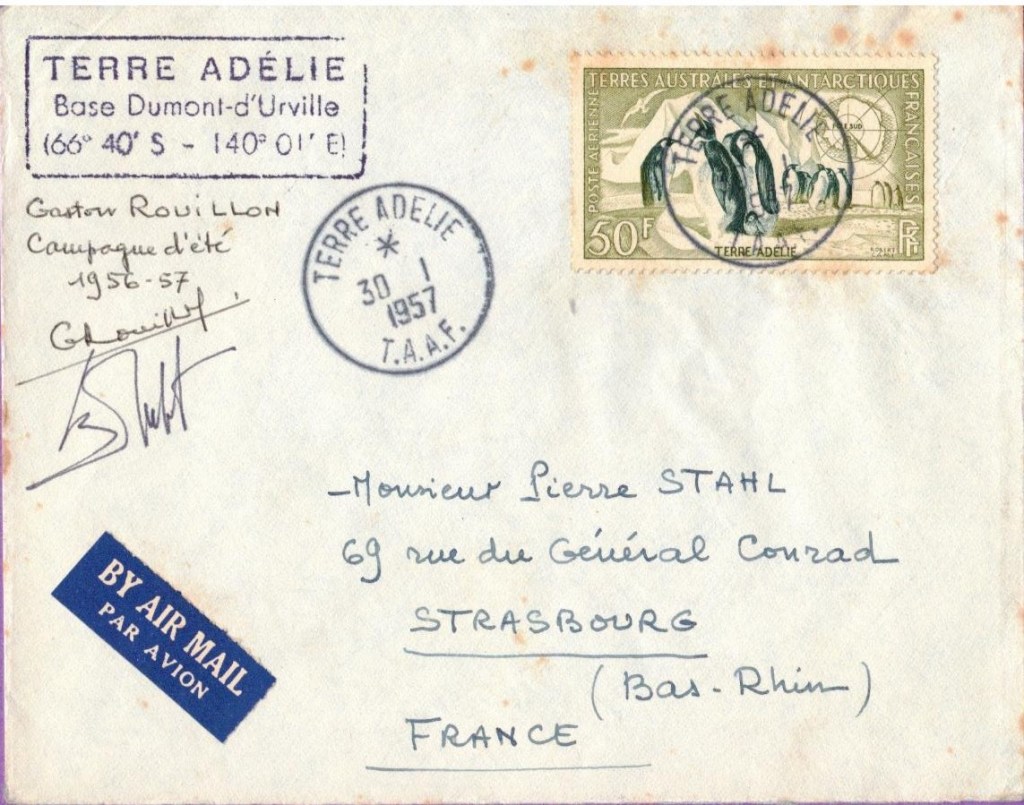 TERRE ADÉLIE
Base Dumont-d'Urville
(66° 40' S - 140° 01' E)
Gaston ROUILLON
Campagne d'été
1956-57
GRouillon
TERRE ADELIE
*
30 1
1957
T.A.A.F.
TERRES AUSTRALES ET ANTARCTIQUES
FRANÇAISES
POSTE AÉRIENNE
PÔLE SUD
50F
TERRE ADÉLIE
RF
TERRE ADELIE
-Monsieur Pierre STAHL
69 rue du Général Conrad
STRASBOURG
(Bas-Rhin)
FRANCE
BY AIR MAIL
PAR AVION